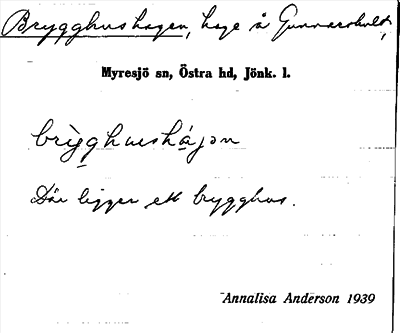 Brygghushagen, hage å Gunnarsholt,
Myresjö sn, Östra hd, Jönk. l.
brỳgghushágən
Där ligger ett brygghus.
Annalisa Anderson 1939